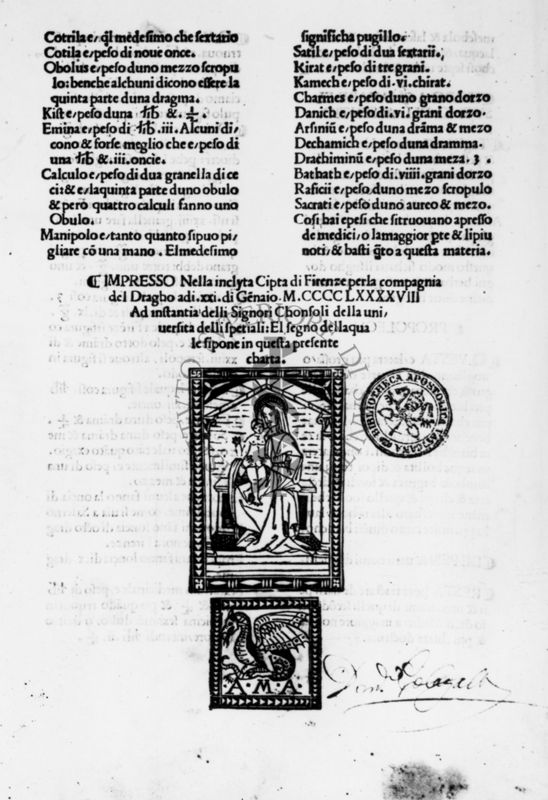 Cotrila e, ql medesimo che sextario
Cotila e, peso di noue once.
Obolus e, peso duno mezzo scropu
lo: benche alchuni dicono essere la
quinta parte duna dragma.
Kist e, peso duna lib &. ½.
Emina e, peso di lib .iii. Alcuni di,
cono & forse meglio che e, peso di
una lib &.iii. oncie.
Calculo e, peso di dua granella di ce
ci: & e, la quinta parte duno obulo
& però quattro calculi fanno uno
Obulo.
Manipolo e, tanto quanto si puo pi,
gliare cō una mano. El medesimo
significha pugillo.
Satil e, peso di dua sextarii.
Kirat e, peso di tre grani.
Kamech e, peso di .vi. chirat.
Charmes e, peso duno grano dorzo
Danich e, peso di .vi. grani dorzo.
Arsiniū e, peso duna drāma & mezo
Dechamich e, peso duna dramma.
Drachiminū e, peso duna meza. ʒ.
Bathath e, peso di .viiii. grani dorzo
Raficii e, peso duno mezo scropulo
Sacrati e, peso duno aureo & mezo.
Cosi hai e pesi che si truouano apresso
de medici, o la maggior pte & li piu
noti, & basti q̄to a questa materia.
¶ IMPRESSO Nella inclyta Cipta di Firenze per la compagnia
del Dragho adi .xxi. di Gēnaio .M.CCCCLXXXXVIII
Ad instantia delli Signori Chonsoli della uni,
uersita delli spetiali: El segno della qua
le si pone in questa presente
charta.
BIBLIOTHECA APOSTOLICA VATICANA
A·M·A·